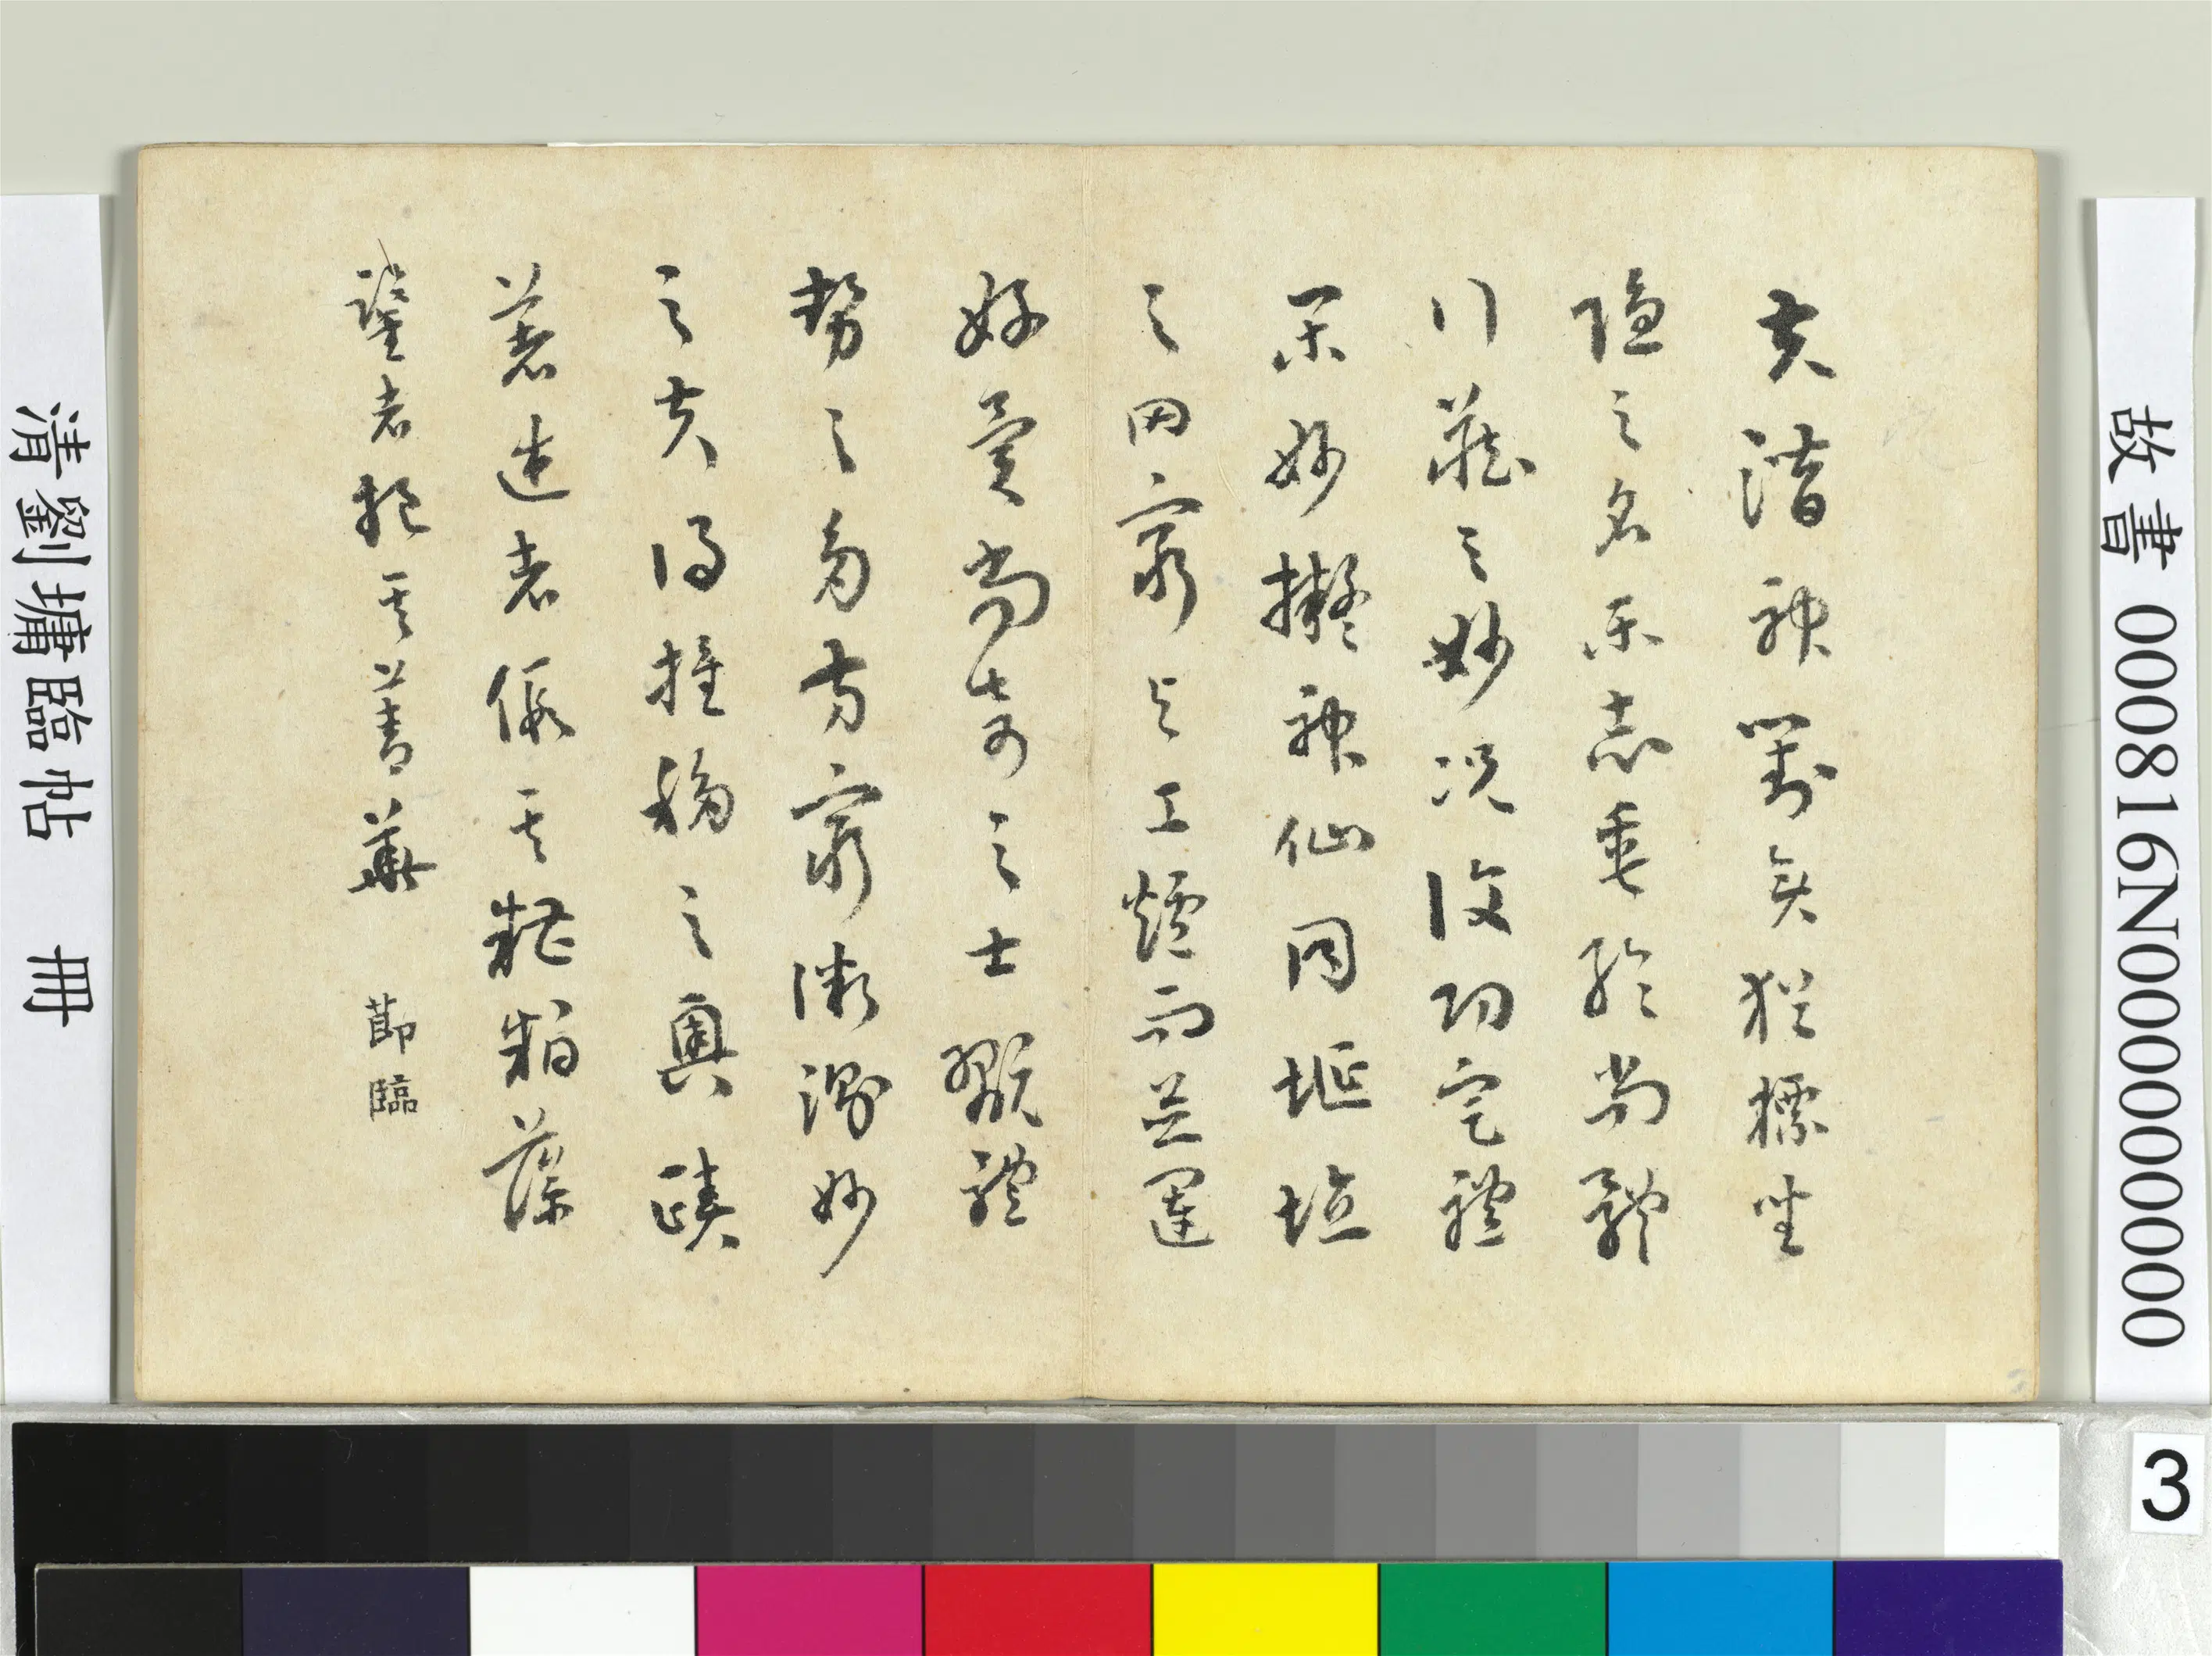 故書 000816N000000000
夫潛神對奕猶標坐
隱之名樂志垂綸尚體
行藏之妙況復功定禮
樂妙擬神仙同埏埴
之罔窮與工爐而並運
好異尚奇之士翫體
勢之多方窮微測妙
之夫得推移之奧賾
著述者假其糟粕藻
鑒者挹其菁華 節臨
清劉墉臨帖 冊
3